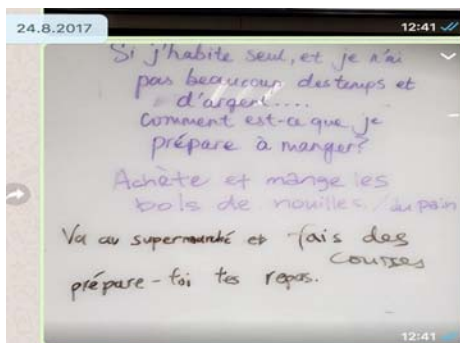 24.8.2017
12:41
Si j'habite seul, et je n'ai
pas beaucoup des temps et
d'argent....
Comment est-ce que je
prépare à manger?
Achète et mange les
bols de nouilles / du pain
Va au supermarché et fais des
courses
prépare-toi tes repas.
12:41